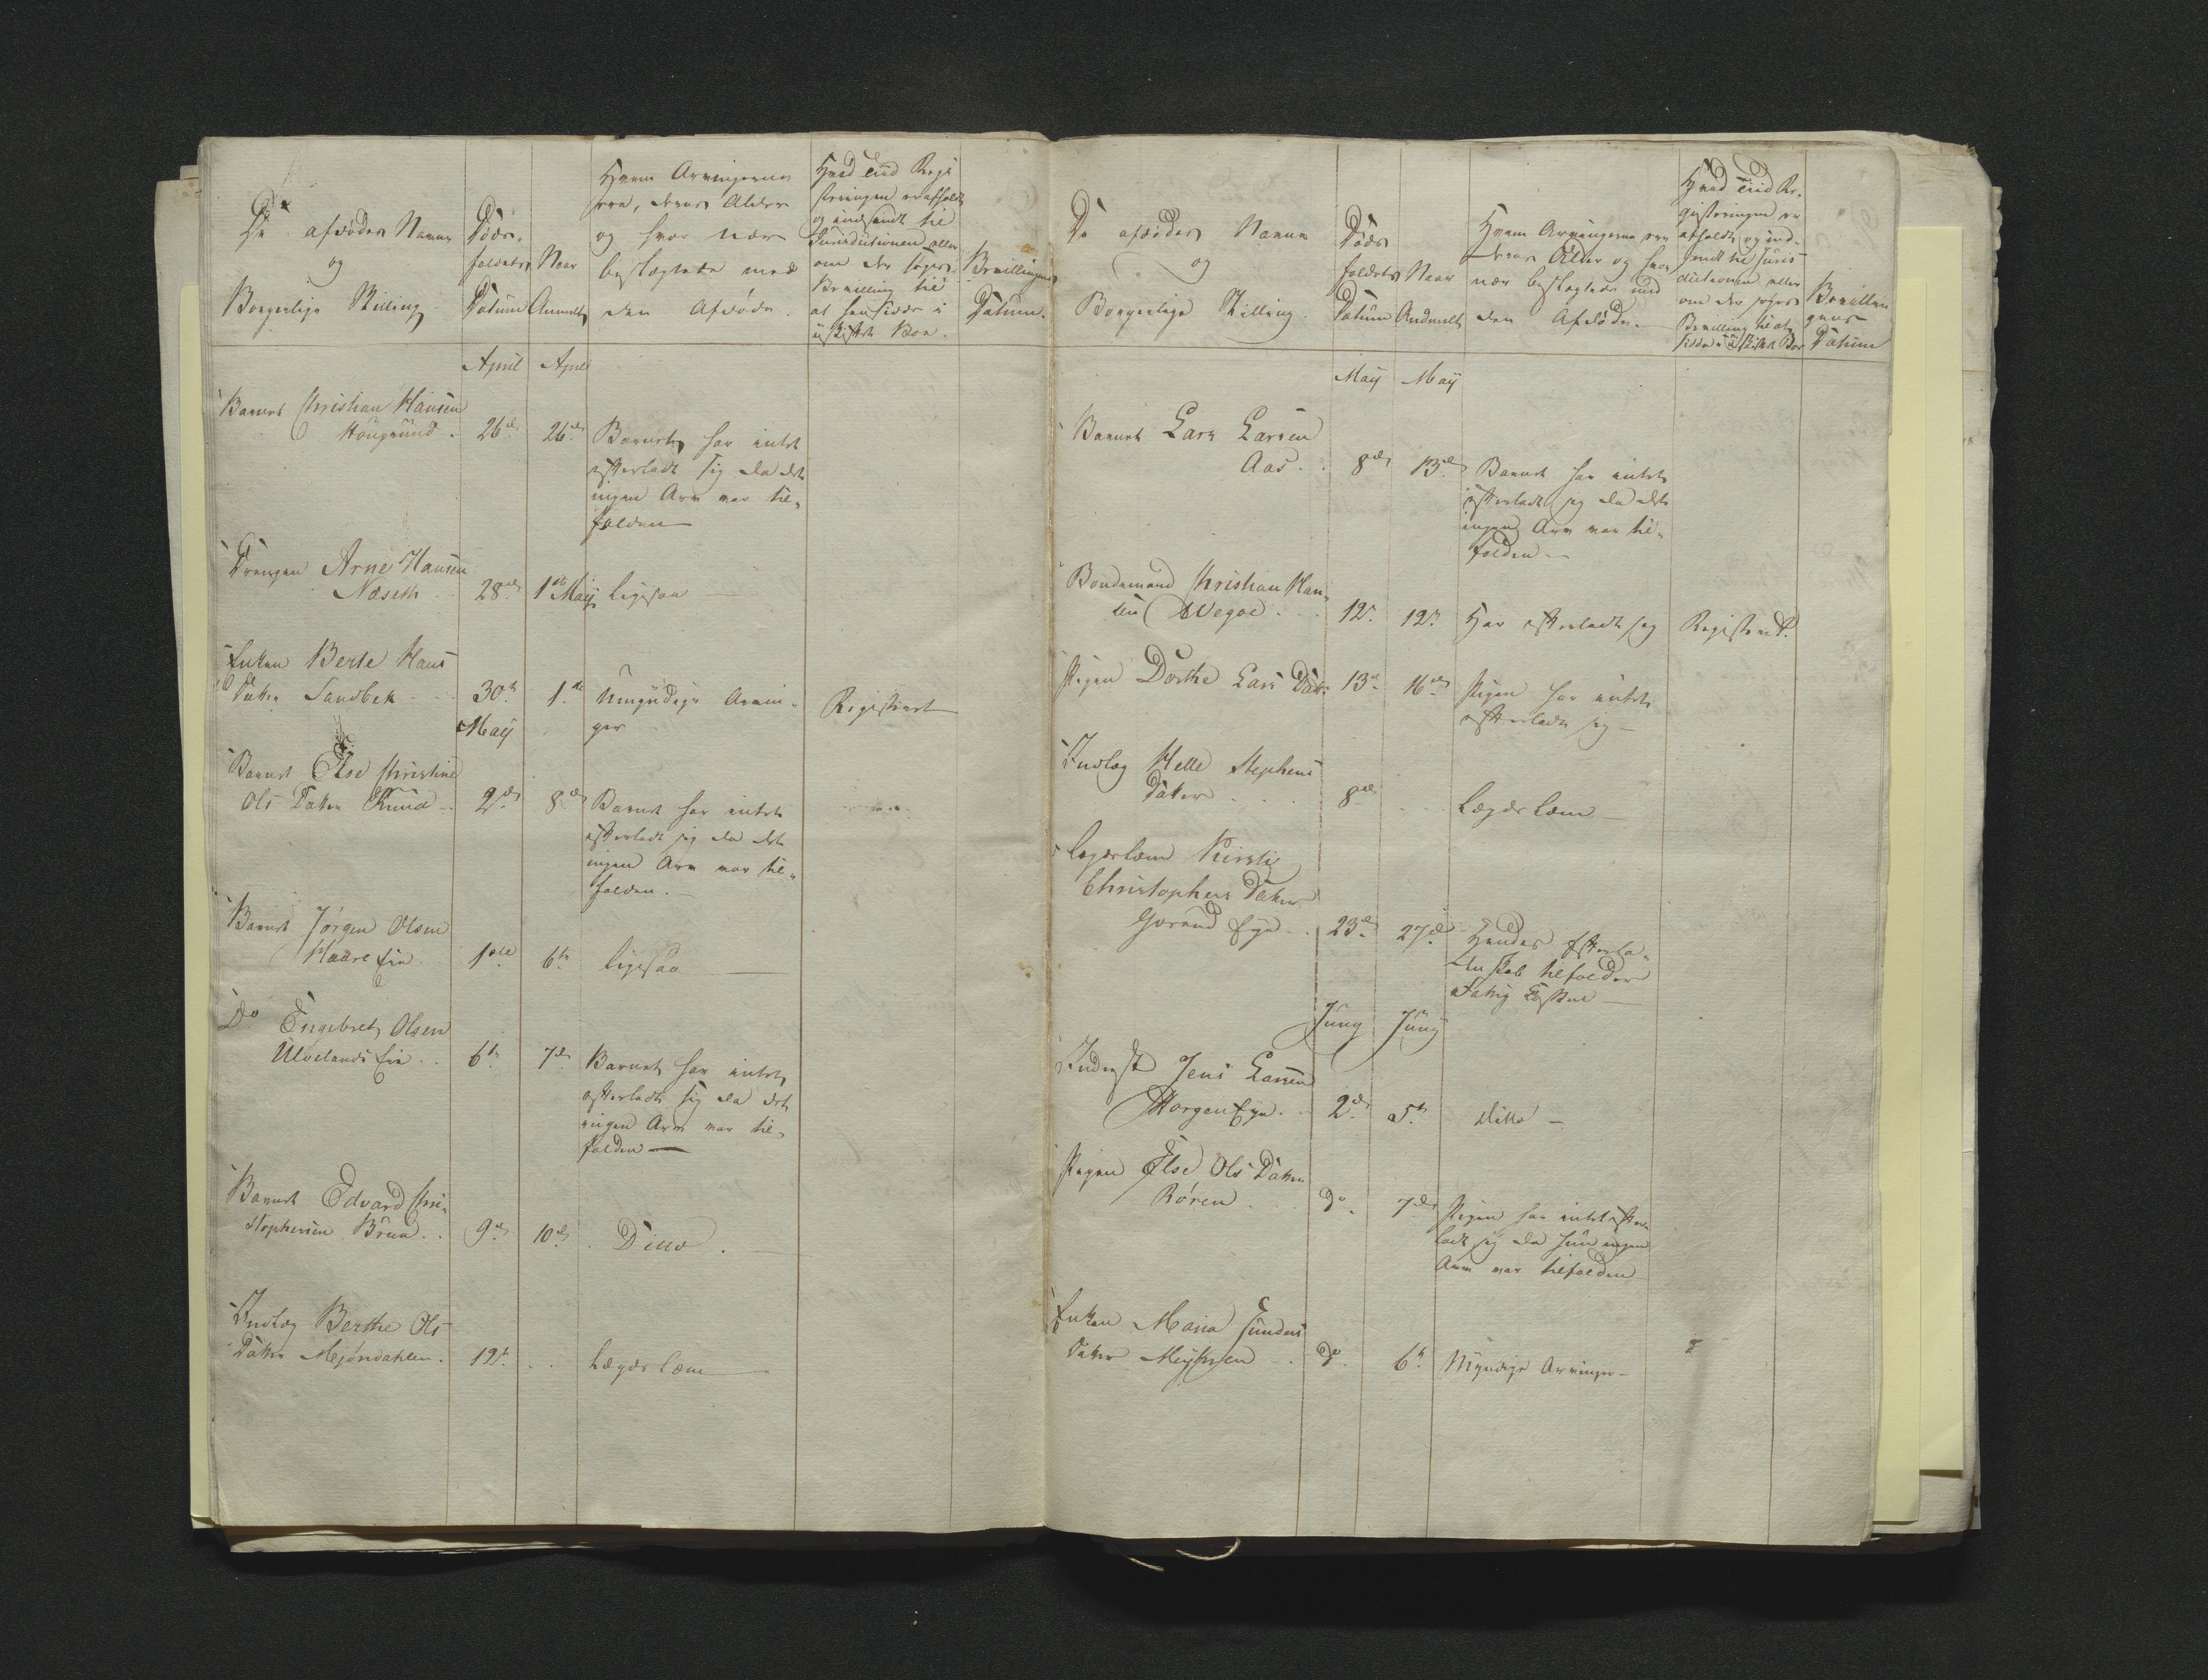 De afdødes Navne
og
Borgerlige Stilling
Døds-
faldets
Datum
Naar
Anmeldt
Hvem Arvingerne
ere, deres Alder
og hvor nær
beslægtede med
den Afdøde.
Hvad Tiid Regi
streringen er afholdt
og indsendt til
Jurisdictionen eller
om der søges
Bevilling til
at hensidde i
uskiftet Boe.
Bevillingens
Datum.
April April
Barnet Christian Hansen
Hougsund . 26de 26de Barnet har intet
efterladt sig da det
ingen Arv var til-
falden
Drengen Arne Hansen
Næseth 28de 1ste Maij ligesaa
Enken Berte Hans
Datter Sandbek 30te 1ste Umyndige Arvin-
ger Registreret
Maij
Barnet Else Christine
Ols Datter Kruna 2de 8de Barnet har intet
efterladt sig da det
ingen Arv var til-
falden.
Barnet Jørgen Olsen
Haare Eie 1ste 6te ligesaa
Do Engebret Olsen
Ulvelands Eie 6te 7de Barnet har intet
efterladt sig da det
ingen Arv var til-
falden
Barnet Edvard Chri-
stophersen Brua 9de 10de Ditto.
Indlæg Berthe Ols
Datter Mejøndahlen. 12te Lægds Lem
De afdødes Navne
og
Borgerlige Stilling
Døds
faldets
Datum
Naar
Andmeldt
Hvem Arvingerne ere
deres Alder og hvor
nær beslægtede med
den Afdøde.
Hvad Tiid Re-
gistreringen er
afholdt og ind-
sendt til Juris-
dictionen eller
om der søges
Bevilling til at
sidde i uskiftet Boe
Bevillin-
gens
Datum
Maij Maij
Barnet Lars Larsen
Aas. 8de 13de Barnet har intet
efterladt sig da det
ingen Arv var til-
falden
Bondemand Christian Han-
sen Wegoe 12te 12te Har efterladt sig Registreret.
Pigen Dorthe Lars Datter 13de 16de Pigen har intet
efterladt sig
Indlæg Helle Stephens
Datter 8de Lægds Lem
Legdslem Kirstie
Christophers Datter
Gorud Eye 23de 27de Hendes Efterla-
denskab tilfalder
Fattig Cassen
Juny Juny
Inderst Jens Larsen
Horgen Eye. 2de 5te ditto
Pigen Else Ols Datter
Røren do 7de Pigen har intet efter
ladt sig da hun ingen
Arv var tilfalden
Enken Maria Gunders
Datter do 6te Myndige Arvinger